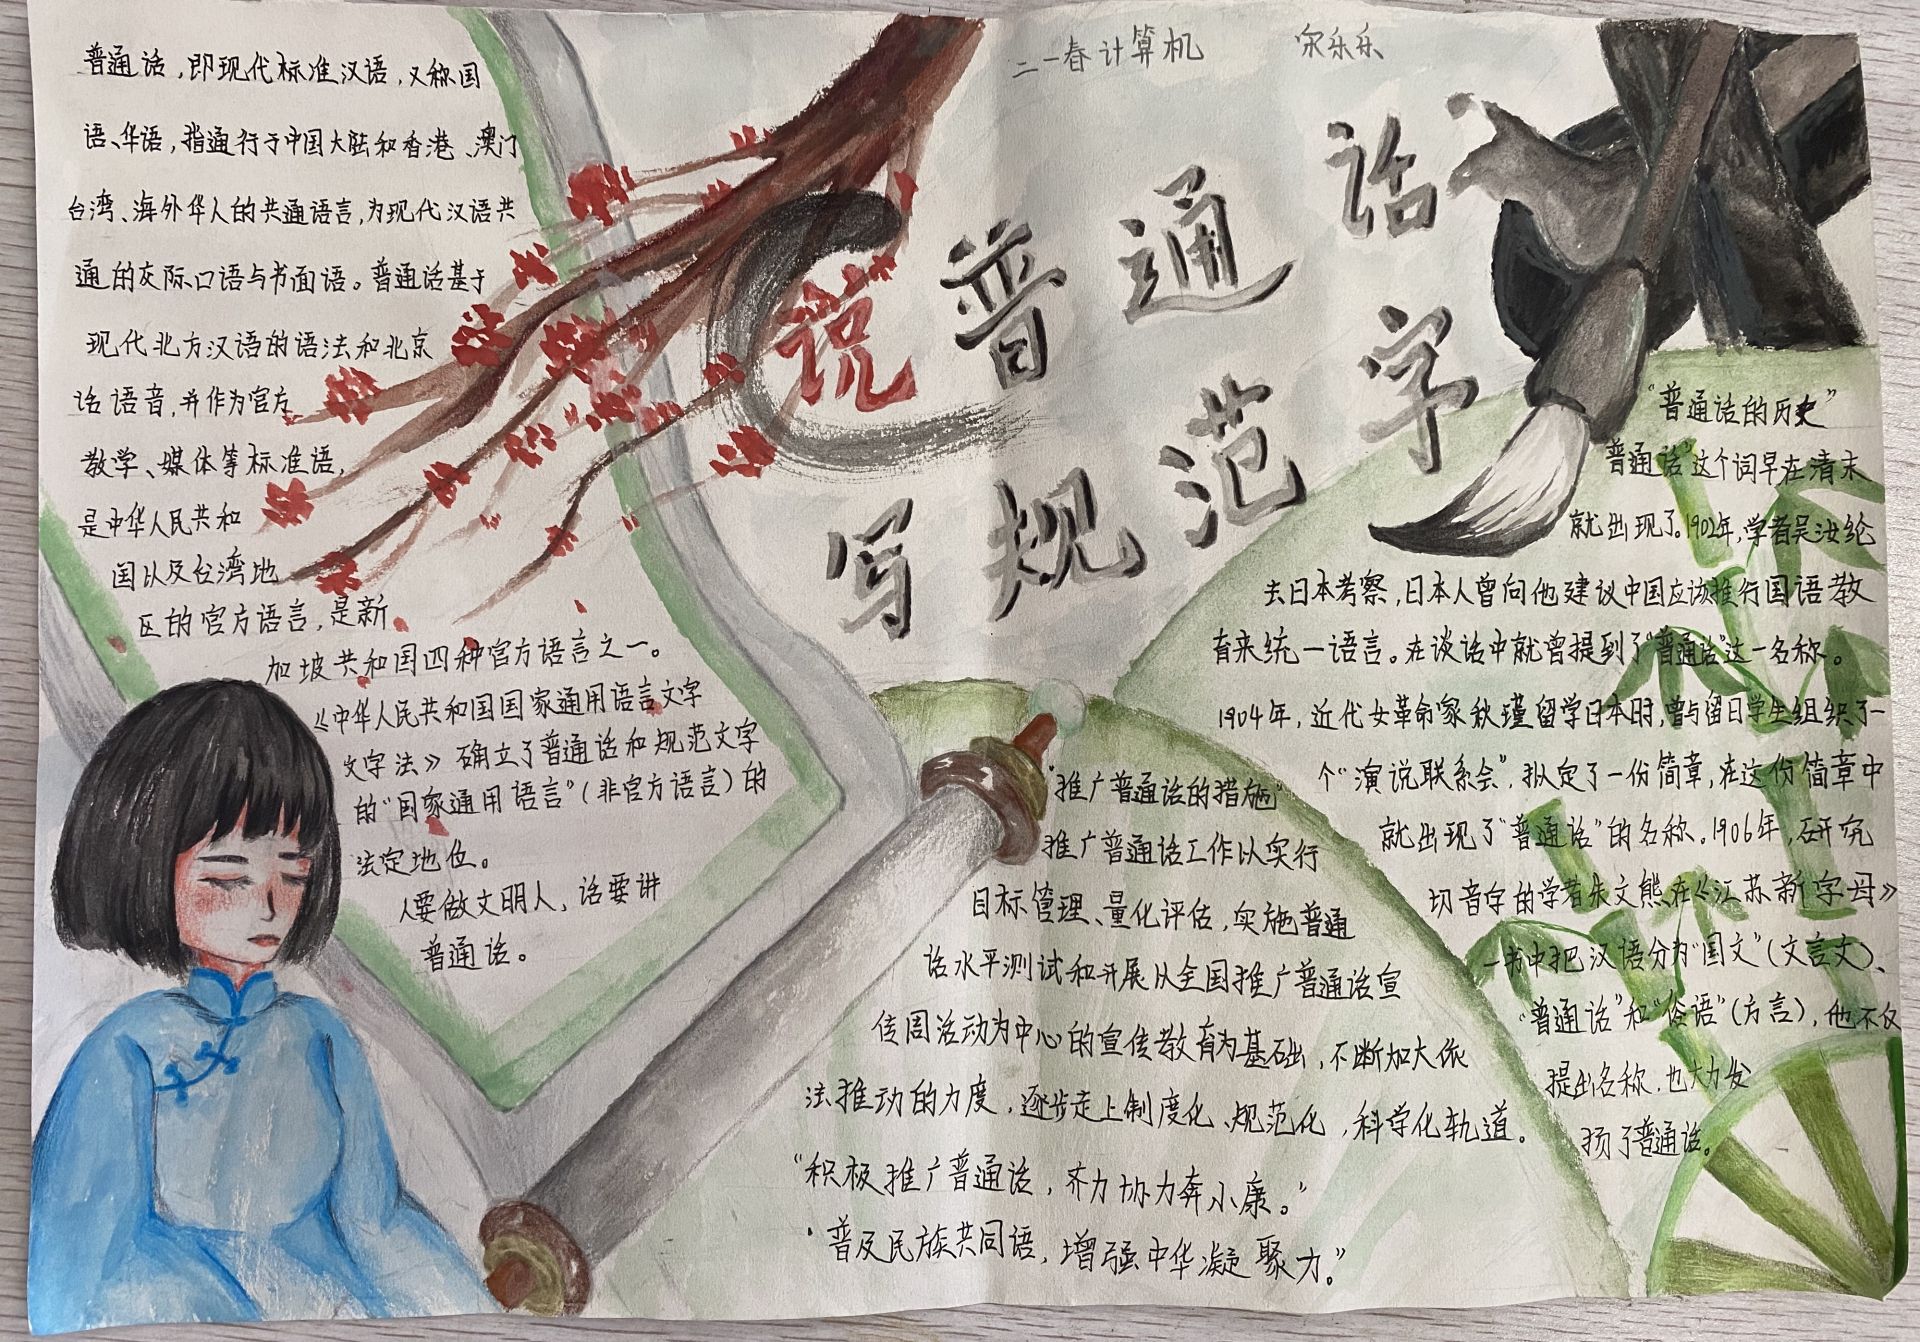 二一春计算机
说普通话
写规范字
普通话，即现代标准汉语，又称国
语、华语，指通行于中国大陆和香港、澳门
台湾、海外华人的共通语言，为现代汉语共
通的交际口语与书面语。普通话基于
现代北方汉语的语法和北京
话语音，并作为官方
教学、媒体等标准语，
是中华人民共和
国以及台湾地
区的官方语言，是新
加坡共和国四种官方语言之一。
《中华人民共和国国家通用语言文字
文字法》确立了普通话和规范文字
的“国家通用语言”（非官方语言）的
法定地位。
人要做文明人，话要讲
普通话。
“推广普通话的措施”
推广普通话工作以实行
目标管理、量化评估，实施普通
话水平测试和开展以全国推广普通话宣
传周活动为中心的宣传教育为基础，不断加大依
法推动的力度，逐步走上制度化、规范化，科学化轨道。
“积极推广普通话，齐力协力奔小康。”
“普及民族共同语，增强中华凝聚力。”
“普通话的历史”
普通话”这个词早在清末
就出现了。1902年，学者吴汝纶
去日本考察，日本人曾向他建议中国应该推行国语教
育来统一语言。在谈话中就曾提到了“普通话”这一名称。
1904年，近代女革命家秋瑾留学日本时，曾与留日学生组织了一
个“演说联系会”，拟定了一份简章，在这份简章中
就出现了“普通话”的名称。1906年，研究
切音字的学者朱文熊在《江苏新字母》
一书中把汉语分为“国文”（文言文）、
“普通话”和“俗语”（方言），他不仅
提出名称，也大力发
扬了普通话。